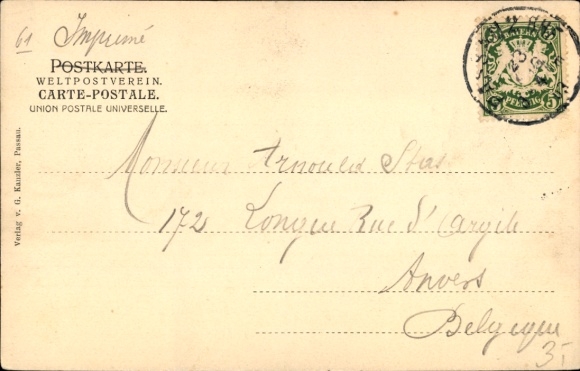 61 Imprimé
POSTKARTE.
WELTPOSTVEREIN.
CARTE-POSTALE.
UNION POSTALE UNIVERSELLE.
BAYERN
PFENNIG 5
Verlag v. G. Kanzler, Passau.
Monsieur Arnould Stas
172 Longue Rue d'Argile
Anvers
Belgique
3.-